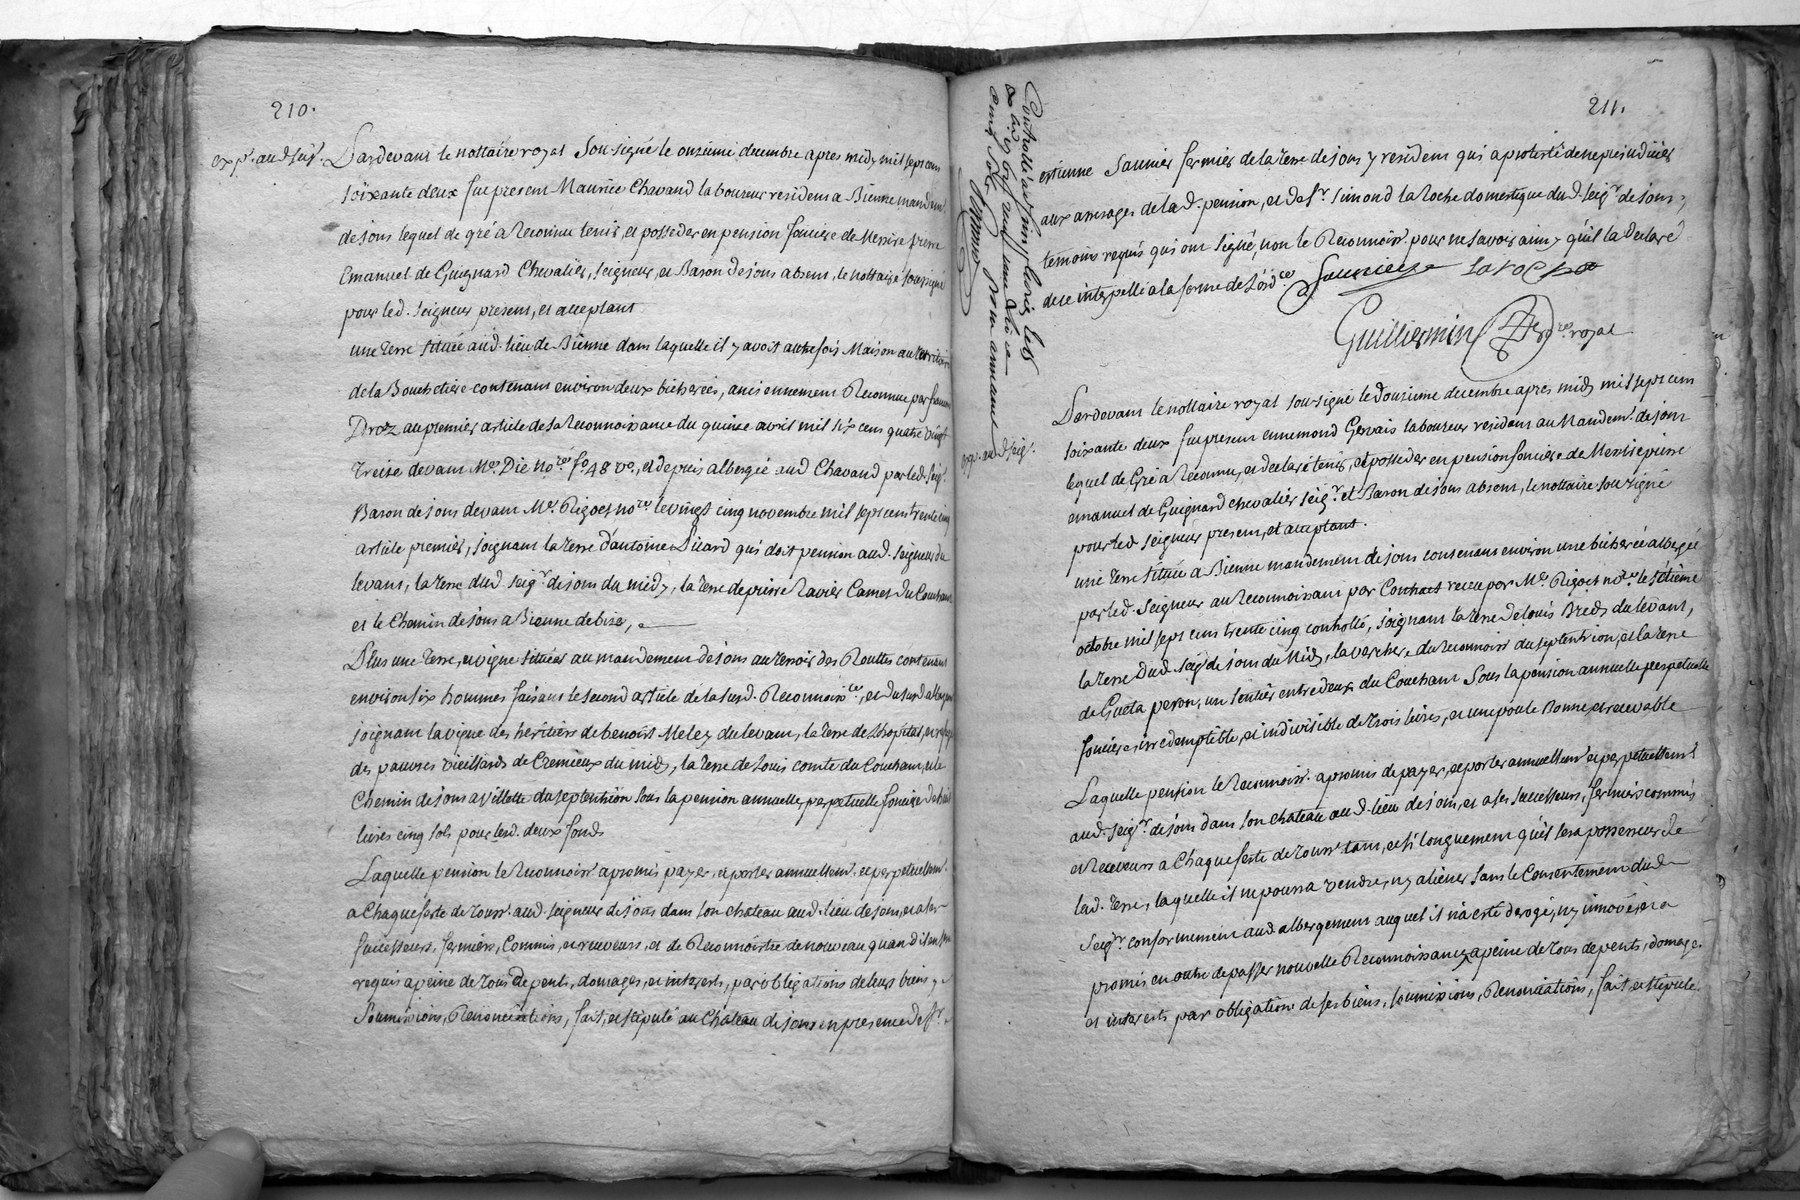 210.
ex p.r aud seig.r
Pardevant le nottaire royal Sousigné le onzieme decembre apres midy mil sept cens
soixante deux fut present Maurice Chavand laboureur residens a Bienne mandem.t
de jons lequel de gré a Reconnu tenir, et posseder en pension fonciere de Messire pierre
Emanuel de Guignard Chevalier, Seigneur, et Baron de jons absent, le nottaire sousigné
pour led. Seigneur present, et acceptant
une Terre située aud. lieu de Bienne dans laquelle il y avoit autrefois Maison au territoire
de la Bouchetiere contenant environ deux bicherées, anciennement Reconnue par francois
Droz au premier article de sa Reconnoissance du quinze avril mil six cens quatre vingt
Treize devant M.e Dié no.re f.o 48 v.o, et depuis albergée aud Chavand par led. Seig.r
Baron de jons devant M.e Rigoct no.re le vingt cinq novembre mil sept cens trente cinq
article premier, joignant la Terre d'antoine Picard qui doit pension aud. Seigneur du
levant, la Terre dud Seig.r de jons du midy, la Terre de pierre Ravier Camet du Couchant
et le Chemin de jons a Bienne de bize,
Plus une Terre, et vigne situées au mandement de jons au Terroir des Routtes contenant
environ six hommes faisant le second article de la susd. Reconnoiss.ce, et du susd alberg.
joignant la vigne des heritiers de benoist Meley du levant, la Terre de L'hopital,
des pauvres vieillards de Cremieux du midy, la Terre de Louis comte du Couchant, et le
Chemin de jons a Villette du septentrion sous la pension annuelle, perpetuelle fonciere de
livres cinq sols pour lesd. deux fonds
Laquelle pension le Reconnoiss.t a promis payer, et porter annuellem.t et perpetuellem.t
a Chaque feste de Touss.ts aud. seigneur de jons dans son chateau aud. lieu de jons, et a ses
successeurs, fermiers, Commis, et receveurs, et de Reconnoistre de nouveau quand il en sera
requis a peine de tous depents, domages, et interests, par obligations de leurs biens,
Soumissions, Renonciations, fait, et stipulé au Chateau de jons en presence de s.r
211.
Controllé a
cinq sols
estienne Saunier fermier de la Terre de jons y resident qui a protesté de ne prejudicier
aux arrerages de lad. pension, et de s.r Simond la Roche domestique dud. Seig.r de jons,
temoins requis qui ont signé, non le Reconnoiss.t pour ne savoir ainsy qu'il la declaré
de ce interpellé a la forme de L'ord.ce Saunier laroche
Guilliermin no.re royal
exp.r aud seig.r
Pardevant le nottaire royal sousigné le douzieme decembre apres midy mil sept cens
soixante deux fut present ennemond Gervais laboureur residens au Mandem.t de jons
lequel de Gré a Reconnu, et declaré tenir, et posseder en pension fonciere de Messire pierre
emanuel de Guignard chevalier Seig.r et Baron de jons absent, le nottaire sousigné
pour led seigneur present, et acceptant.
une Terre située a Bienne mandement de jons contenant environ une bicherée albergée
par led. Seigneur au reconnoissant par Contract receu par M.e Rigoct no.re le Sétième
octobre mil sept cens trente cinq controllé, joignant la Terre de louis Bredy du levant,
la Terre dud. Seig.r de jons du Midy, la verchere du reconnoiss.t du septentrion, et la Terre
de Gueta peron, un sentier entre deux du Couchant Sous la pension annuelle perpetuelle
fonciere irredemptible, et indivisible de trois livres, et une poule Bonne, et recevable
Laquelle pension le Reconnoiss.t a promis de payer, et porter annuellem.t et perpetuellem.t
aud. Seig.r de jons dans son chateau aud. lieu de jons, et a ses successeurs, fermiers commis
et Receveurs a Chaque feste de Touss.ts tant, et si longuement qu'il sera possesseur de
lad. Terre, laquelle il ne pourra vendre, ny aliener sans le Consentement dud.
Seig.r conformement aud albergement auquel il n'a esté derogé, ny innové, et a
promis en outre de passer nouvelle Reconnoissance, a peine de Tous depents, domages
et interests par obligations de ses biens, soumissions, Renonciations, fait, et stipulé